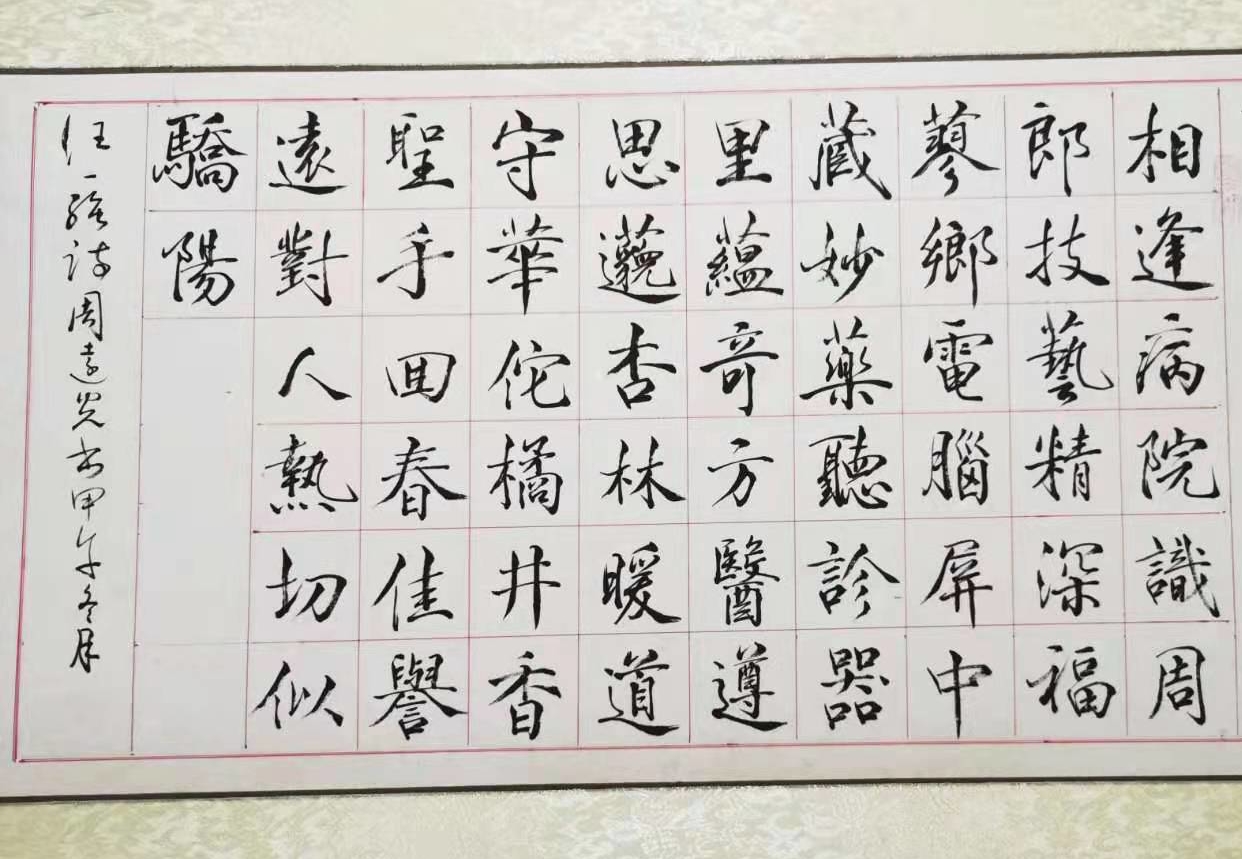 相逢病院識周
郎技藝精深福
蓼鄉電腦屏中
藏妙藥聽診器
里蘊竒方醫遵
思邈杏林暖道
守華佗橘井香
聖手囬春佳譽
遠對人熱切似
驕陽
汪一诗周遠光书甲午冬月